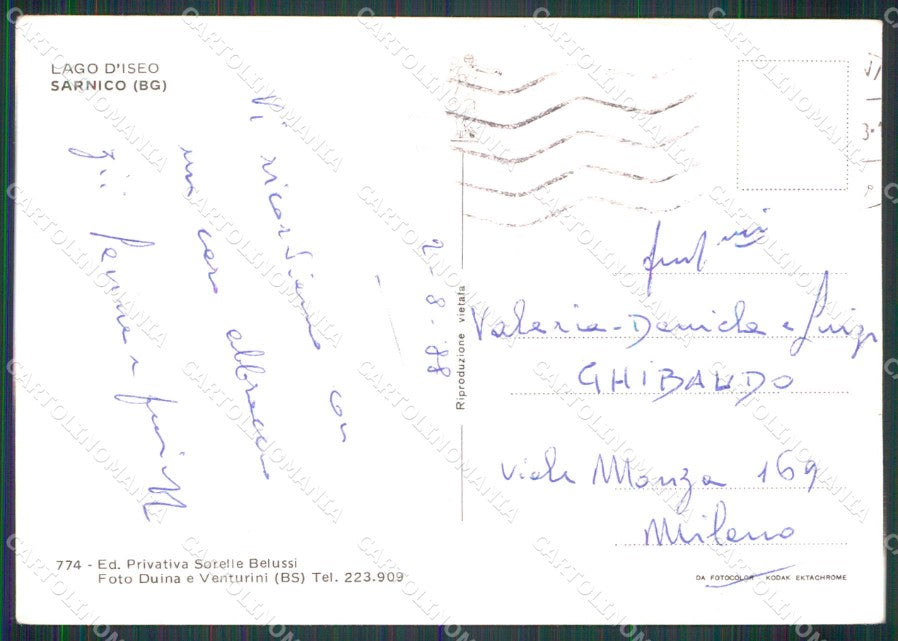 LAGO D'ISEO
SARNICO (BG)
2-8-88
Vi ricordiamo con
un caro abbraccio
Riproduzione vietata
Valeria-Daniela e Luigi
GHIBAUDO
Viale Monza 169
Milano
774 - Ed. Privativa Sorelle Belussi
Foto Duina e Venturini (BS) Tel. 223.909
DA FOTOCOLOR KODAK EKTACHROME
CARTOLINOMANIA